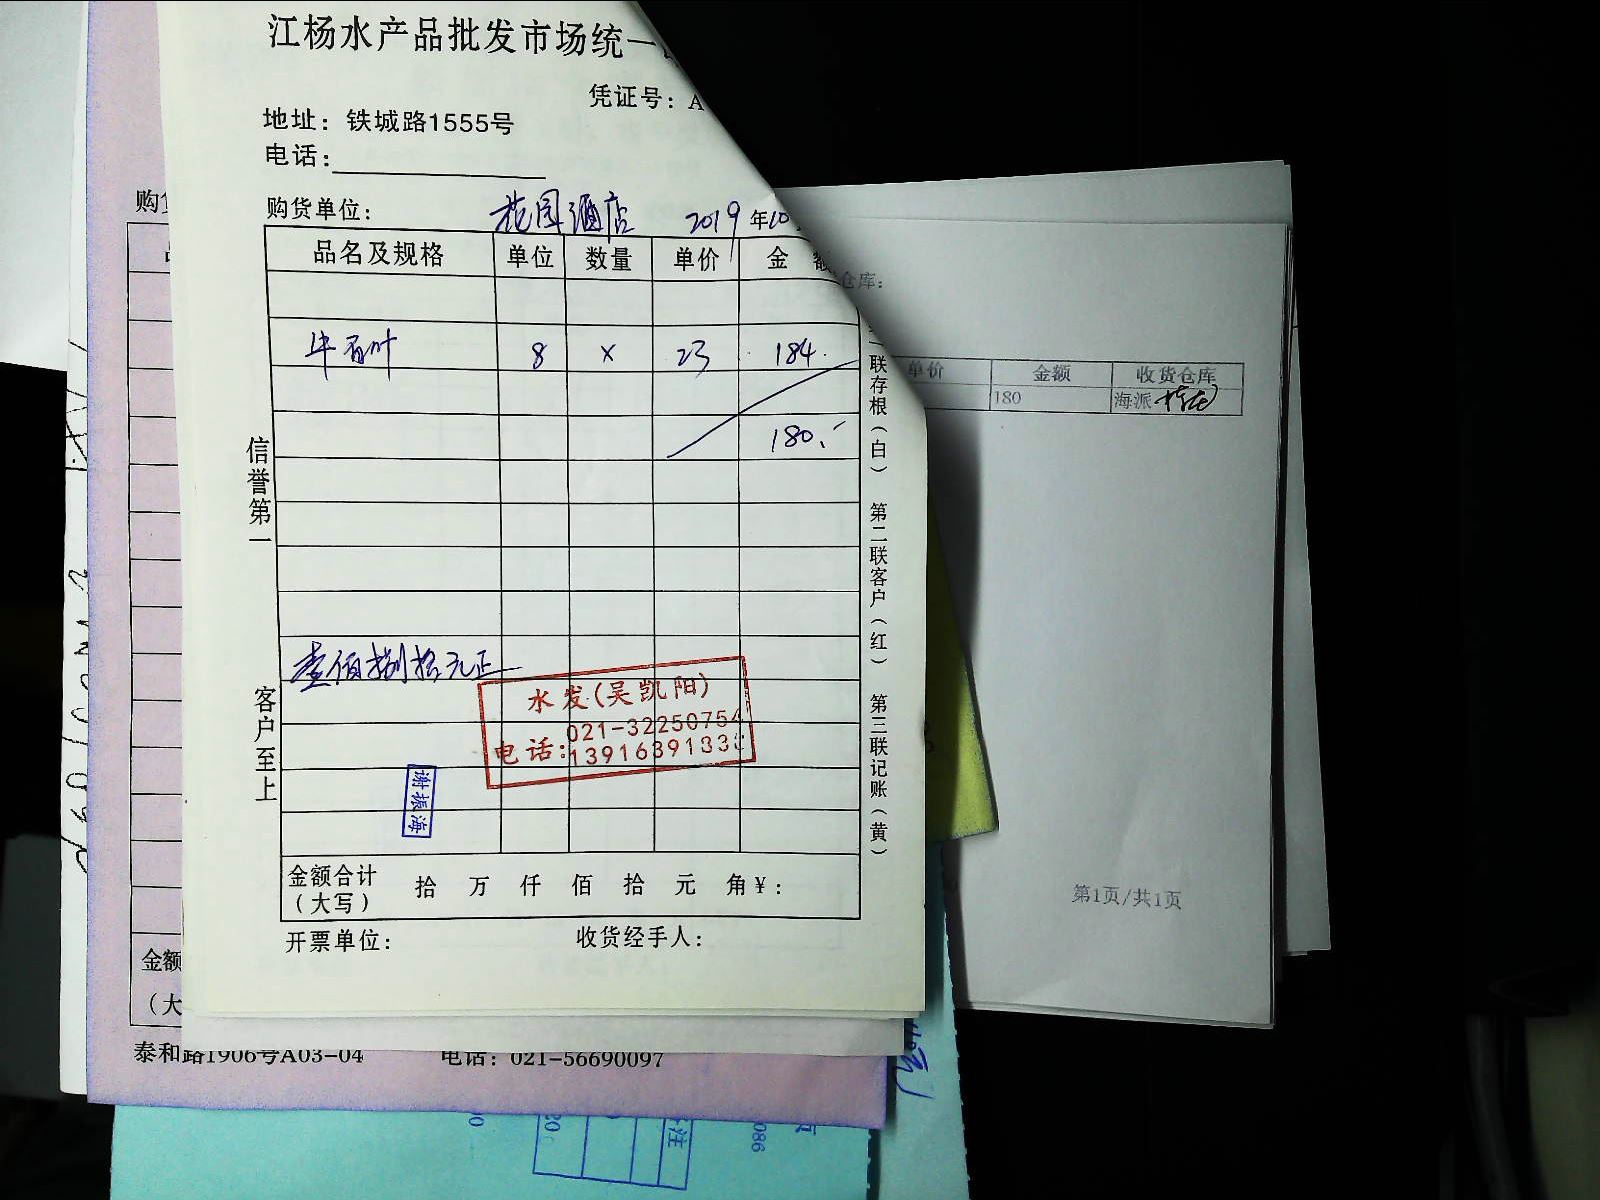 江杨水产品批发市场统一
凭证号：A
地址：铁城路1555号
电话：
购货单位： 花园酒店 2019 年10
品名及规格 单位 数量 单价 金 额
牛百叶 8 × 23 184.
180.-
壹佰捌拾元正
水发(吴凯阳)
021-3225075
电话:1391639133
谢振海
金额合计
（大写）
拾 万 仟 佰 拾 元 角 ¥：
开票单位： 收货经手人：
信誉第一
客户至上
联存根（白） 第二联客户（红） 第三联记账（黄）
仓库:
单价 金额 收货仓库
180 海派
第1页/共1页
购
金额
（大
泰和路1906号A03-04 电话：021-56690097